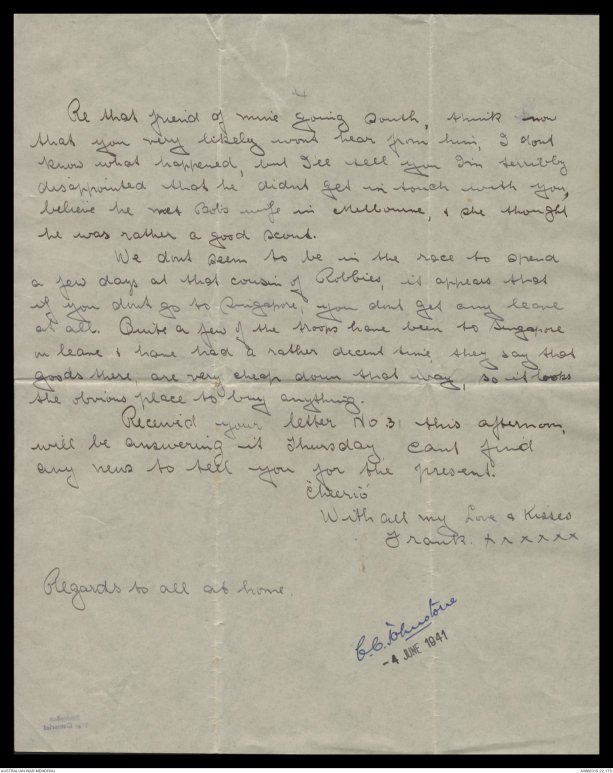 Re that friend of mine going South, think now
that you very likely wont hear from him, I dont
know what happened, but I'll tell you I'm terribly
disappointed that he didnt get in touch with you,
believe he met Bobs wife in Melbourne, & she thought
he was rather a good scout.
We dont seem to be in the race to spend
a few days at that cousin of Robbies, it appears that
if you dont go to Singapore, you dont get any leave
at all. Quite a few of the troops have been to Singapore
on leave & have had a rather decent time, they say that
goods there, are very cheap down that way, so it looks
the obvious place to buy anything.
Received your letter No 31 this afternoon,
will be answering it Thursday, cant find
any news to tell you for the present.
"Cheerio"
With all my Love & Kisses
Frank. x x x x x x
Regards to all at home.
C.C. Johnstone
- 4 JUNE 1941
AUSTRALIAN WAR MEMORIAL